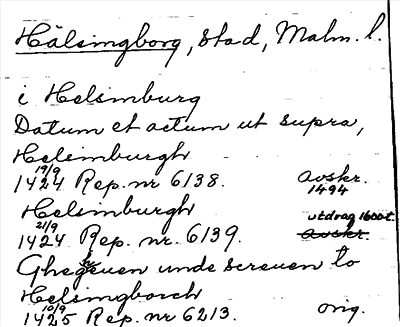 Hälsingborg, stad, Malm. l.
i Helsimburg
Datum et actum ut supra,
Helsimburgh
19/9
1424 Rep. nr 6138. Avskr. 1494
Helsimburgh
21/9 utdrag 1600 t.
1424 Rep. nr. 6139. Avskr.
Ghegeuen unde screuen to
Helsingborch
10/9
1425 Rep. nr 6213. orig.